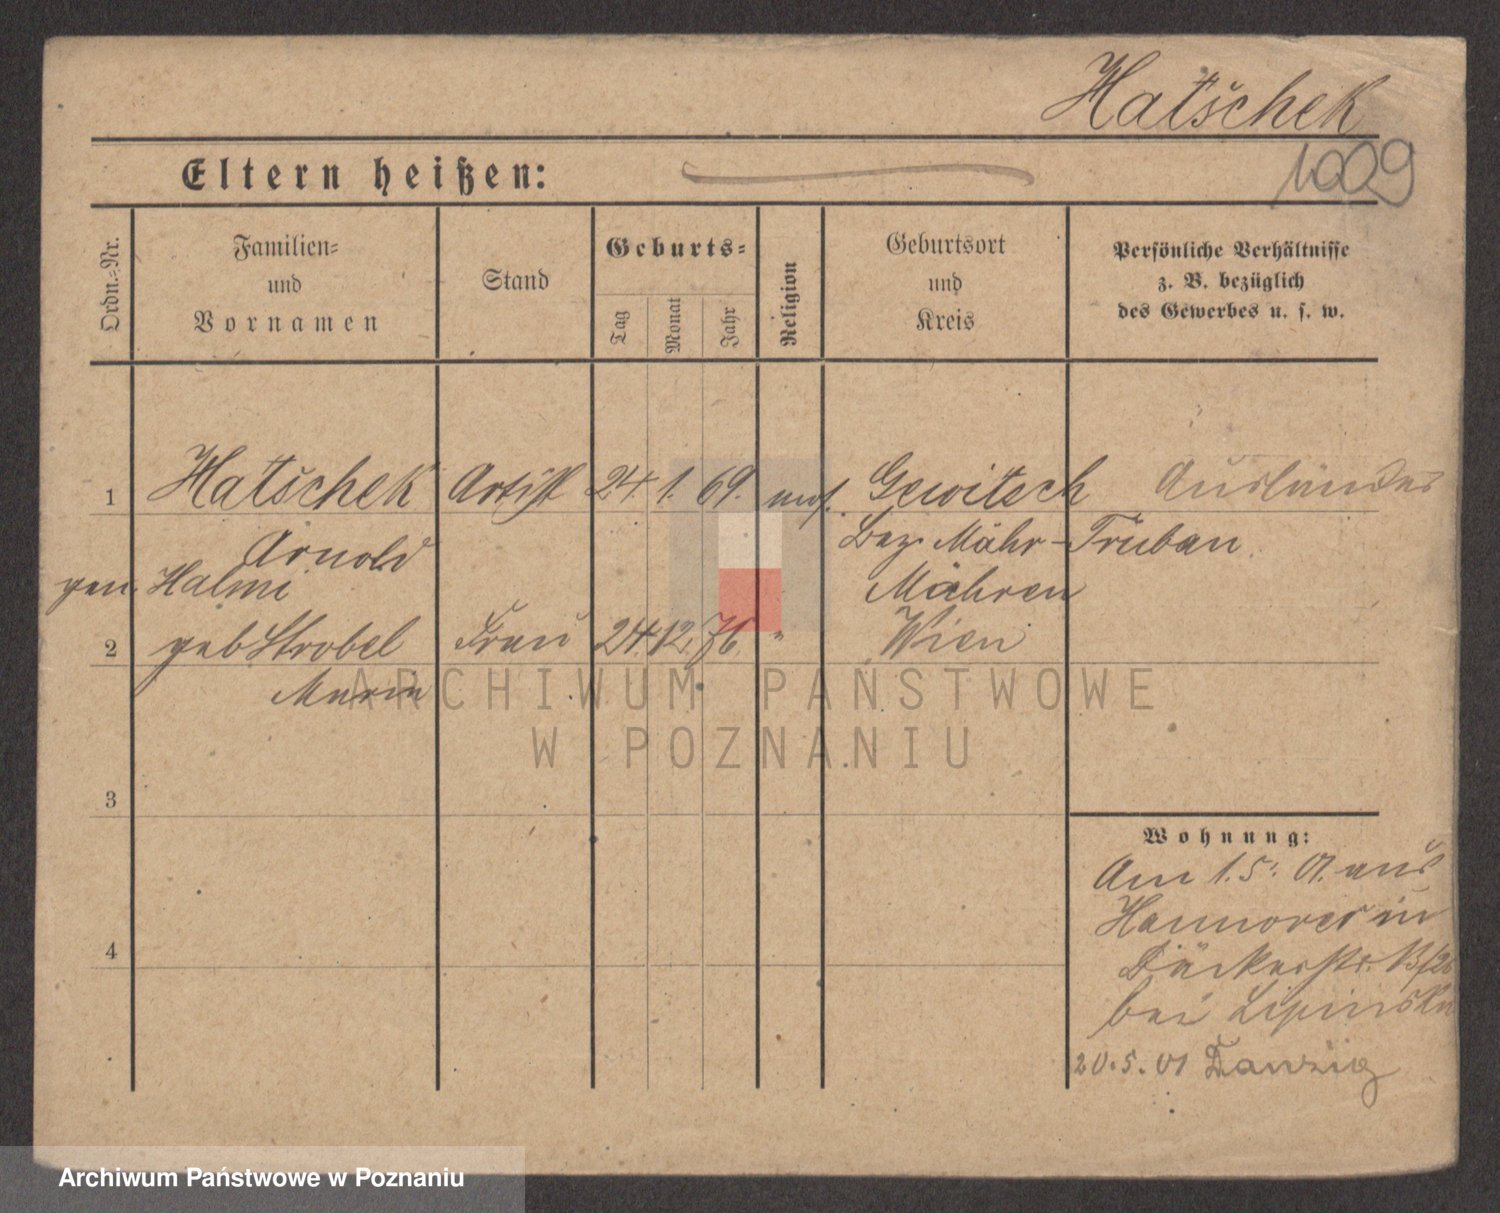 Hatschek
1009
Eltern heißen:
Ordn.-Nr.
Familien-
und
Vornamen
Stand
Geburts-
Tag
Monat
Jahr
Religion
Geburtsort
und
Kreis
Persönliche Verhältnisse
z. B. bezüglich
des Gewerbes u. s. w.
1 Hatschek Artist 24. 1. 69. mos. Gewitsch Ausländer
Arnold Bez. Mähr-Trübau
gen. Halmi Mähren
2 geb Strobel Frau 24. 12. 76. " Wien
Maria
ARCHIWUM PAŃSTWOWE
W POZNANIU
3
Wohnung:
Am 1. 5. 01. aus
Hannover in
Bäckerstr. 13/26
bei Lipinski
20. 5. 01 Danzig
4
Archiwum Państwowe w Poznaniu